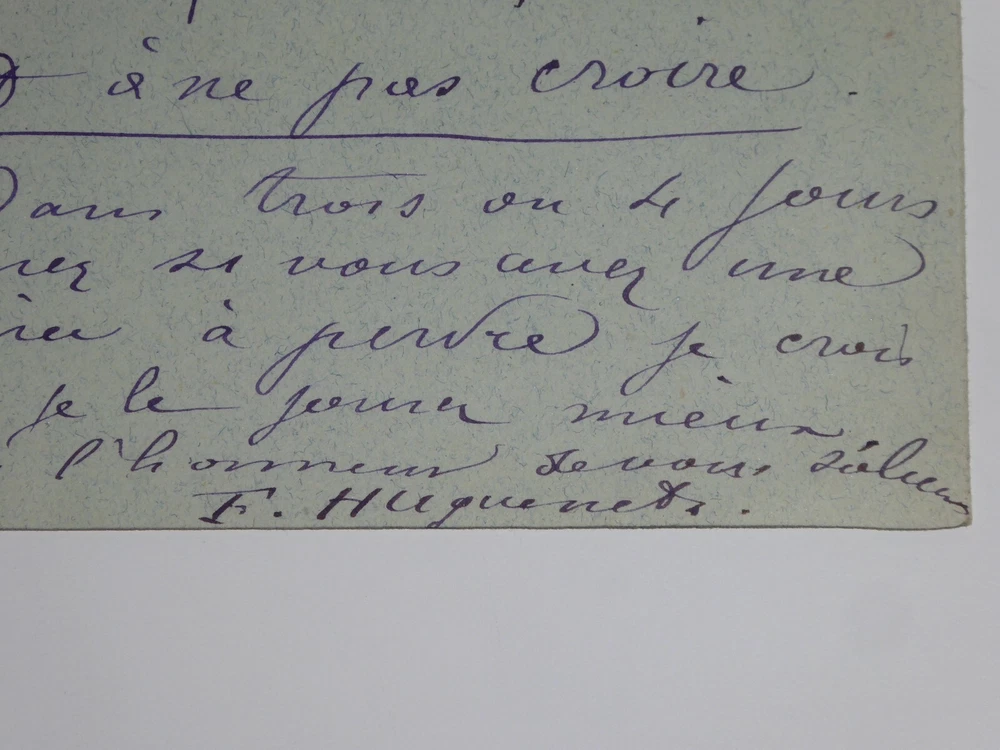 à ne pas croire.
Dans trois ou 4 jours
nez si vous avez une
à perdre je crois
je le jouerai mieux.
l'honneur de vous saluer
F. Huguenet.